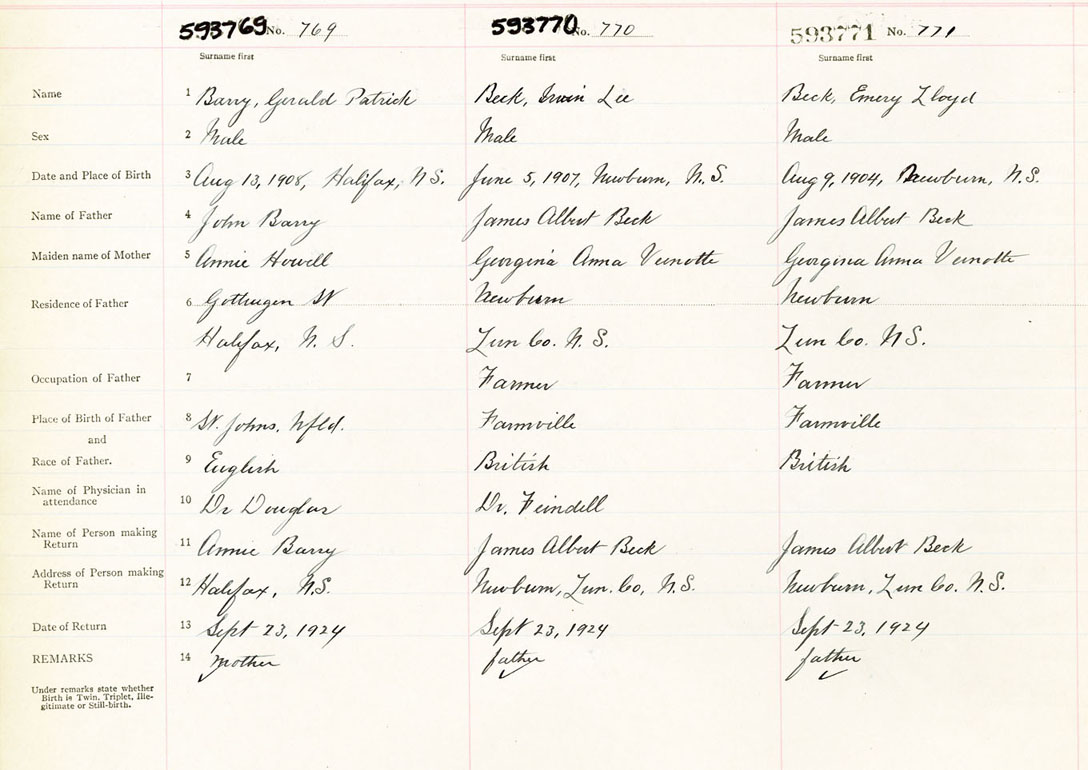 593769 No. 769 593770 No. 770 593771 No. 771
Surname first Surname first Surname first
Name 1 Barry, Gerald Patrick Beck, Irwin Lee Beck, Emery Lloyd
Sex 2 Male Male Male
Date and Place of Birth 3 Aug 13, 1908, Halifax, N.S. June 5, 1907, Newburn, N.S. Aug 9, 1904, Newburn, N.S.
Name of Father 4 John Barry James Albert Beck James Albert Beck
Maiden name of Mother 5 Annie Howell Georgina Anna Veinotte Georgina Anna Veinotte
Residence of Father 6 Gottingen St Newburn Newburn
Halifax, N. S. Lun Co. N. S. Lun Co. N S.
Occupation of Father 7 Farmer Farmer
Place of Birth of Father 8 St. Johns, Nfld. Farmville Farmville
and
Race of Father. 9 English British British
Name of Physician in
attendance 10 Dr Douglas Dr. Feindell
Name of Person making
Return 11 Annie Barry James Albert Beck James Albert Beck
Address of Person making
Return 12 Halifax, N.S. Newburn, Lun. Co, N.S. Newburn, Lun Co. N.S.
Date of Return 13 Sept 23, 1924 Sept 23, 1924 Sept 23, 1924
REMARKS 14 mother father father
Under remarks state whether
Birth is Twin, Triplet, Ille-
gitimate or Still-birth.